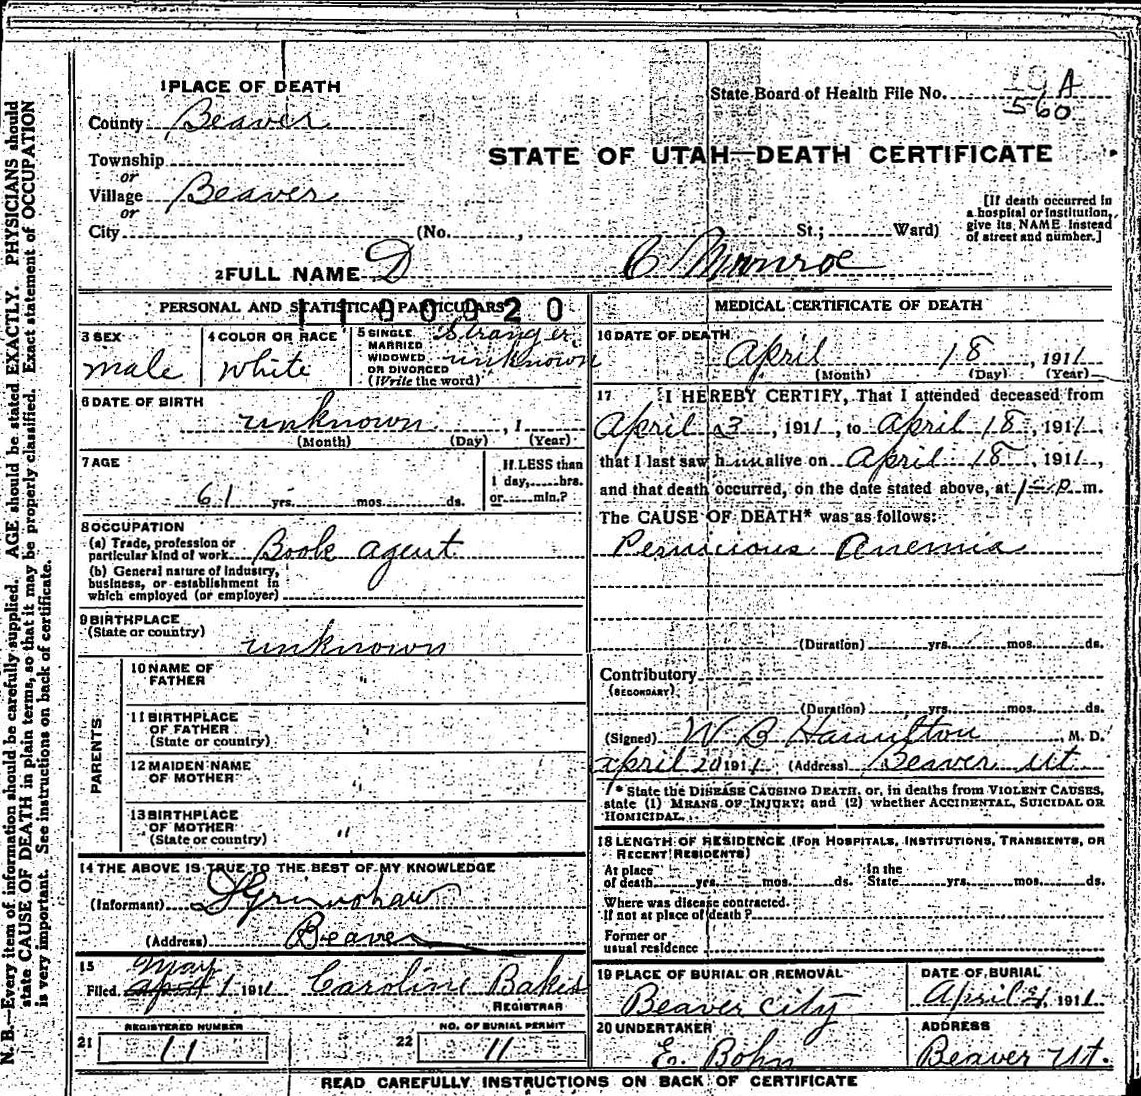 N. B.—Every item of information should be carefully supplied. AGE should be stated EXACTLY. PHYSICIANS should
state CAUSE OF DEATH in plain terms, so that it may be properly classified. Exact statement of OCCUPATION
is very important. See instructions on back of certificate.
1 PLACE OF DEATH
State Board of Health File No. 19 A
560
County Beaver
STATE OF UTAH—DEATH CERTIFICATE
Township
or
Village Beaver
or
City (No. , St.; Ward)
[If death occurred in
a hospital or institution,
give its NAME instead
of street and number.]
2 FULL NAME D C Monroe
PERSONAL AND STATISTICAL PARTICULARS
1100920
3 SEX
male
4 COLOR OR RACE
white
5 SINGLE
MARRIED
WIDOWED
OR DIVORCED
(Write the word)
Stranger
unknown
6 DATE OF BIRTH
unknown , 1
(Month) (Day) (Year)
7 AGE
61 yrs. mos. ds.
If LESS than
1 day, hrs.
or min.?
8 OCCUPATION
(a) Trade, profession or
particular kind of work Book agent
(b) General nature of industry,
business, or establishment in
which employed (or employer)
9 BIRTHPLACE
(State or country)
unknown
PARENTS
10 NAME OF
FATHER "
11 BIRTHPLACE
OF FATHER
(State or country) "
12 MAIDEN NAME
OF MOTHER "
13 BIRTHPLACE
OF MOTHER
(State or country) "
14 THE ABOVE IS TRUE TO THE BEST OF MY KNOWLEDGE
(Informant) Grimshaw
(Address) Beaver
15
Filed May 1 1911 Caroline Baker
REGISTRAR
21 REGISTERED NUMBER
11
22 NO. OF BURIAL PERMIT
11
MEDICAL CERTIFICATE OF DEATH
16 DATE OF DEATH
April 18 , 1911
(Month) (Day) (Year)
17 I HEREBY CERTIFY, That I attended deceased from
April 3 , 1911 , to April 18 , 1911 ,
that I last saw him alive on April 18 , 1911 ,
and that death occurred, on the date stated above, at 1 P m.
The CAUSE OF DEATH* was as follows:
Pernicious Anemia
(Duration) yrs. mos. ds.
Contributory
(SECONDARY)
(Duration) yrs. mos. ds.
(Signed) W B Hamilton , M. D.
April 20 1911 (Address) Beaver Ut
* State the DISEASE CAUSING DEATH, or, in deaths from VIOLENT CAUSES,
state (1) MEANS OF INJURY; and (2) whether ACCIDENTAL, SUICIDAL OR
HOMICIDAL.
18 LENGTH OF RESIDENCE (FOR HOSPITALS, INSTITUTIONS, TRANSIENTS, OR
RECENT RESIDENTS)
At place
of death yrs. mos. ds.
In the
State yrs. mos. ds.
Where was disease contracted.
If not at place of death?
Former or
usual residence
19 PLACE OF BURIAL OR REMOVAL
Beaver City
DATE OF BURIAL
April 21 , 1911
20 UNDERTAKER
E. Bohn
ADDRESS
Beaver Ut.
READ CAREFULLY INSTRUCTIONS ON BACK OF CERTIFICATE